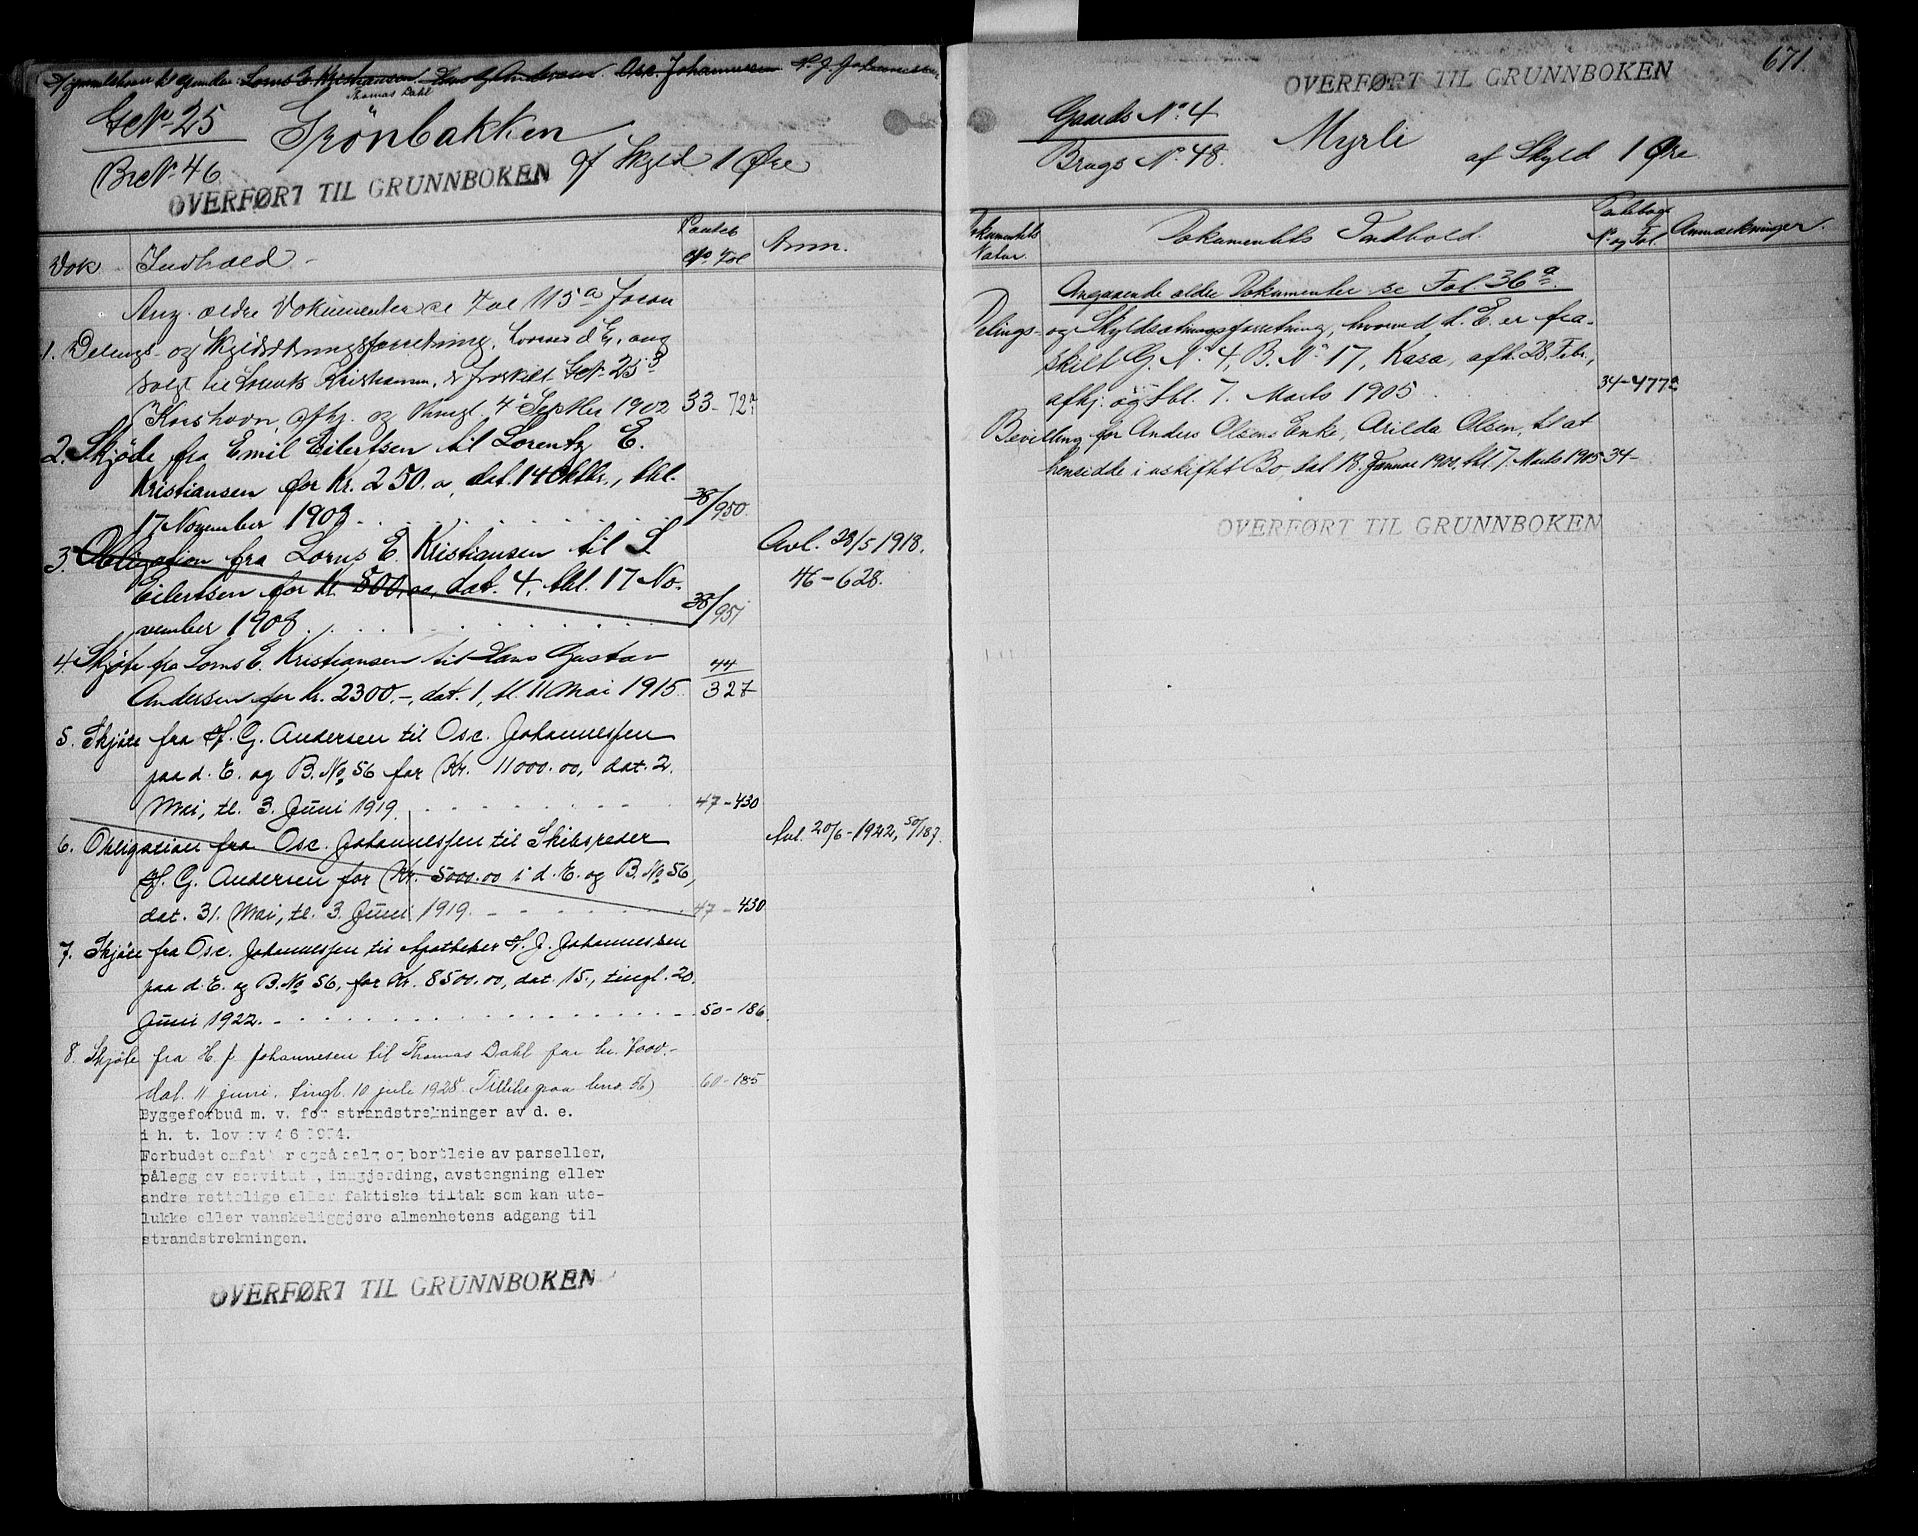 Hjemmelshaver til eiendn: Lorns E. Kristiansen Hans G Andersen Osc. Johannessen H. J. Johannessen
Thomas Dahl
G. No. 25
Grönbakken
Br. No. 46
af Skyld 1 Øre
OVERFØRT TIL GRUNNBOKEN
Dok
Indhold
Panteb
No Fol
Anm.
Ang. ældre Dokumenter se Fol 115 a
1. Delings- og Skyldsætningsforretning, hvorved d. E., ang
solgt til Lorents Kristiansen, er fraskilt G. No. 25 B
Korshavn, afhj. og thingl. 4 Septbr 1902 33-72a
2. Skjøde fra Emil Eilertsen til Lorentz E.
Kristiansen for Kr. 250.00, dat. 14 Oktbr., tbl.
17 November 1908 38/950
3. Obligation fra Lorns E. Kristiansen til S.
Eilertsen for kr. 800.00, dat. 4, tbl. 17 No-
vember 1908 38/951
Avl. 28/5 1918.
46-628.
4. Skjøte fra Lorns E. Kristiansen til Hans Gustav
Andersen for Kr. 2300.-, dat. 1, tl. 11 Mai 1915 44/327
5. Skjøte fra H. G. Andersen til Osc. Johannessen
paa d. E. og B. No. 56 for Kr. 11000.00, dat. 2.
Mai, tl. 3. Juni 1919. 47-430
6. Obligation fra Osc. Johannessen til Skibsreder
H. G. Andersen for Kr. 5000.00 i d. E. og B. No. 56,
dat. 31. Mai, tl. 3. Juni 1919. 47-430
Avl. 20/6-1922, 50/187.
7. Skjøte fra Osc. Johannessen til Apotheker H. J. Johannessen
paa d. E. og B. No. 56, for Kr. 8500.00, dat. 15., tingl. 20.
Juni 1922. 50-186.
8. Skjøte fra H. J. Johannesen til Thomas Dahl for kr. 7000.-
dat. 11 juni, tingl. 10 juli 1928. (Tillike paa bno. 56) 60-185
Byggeforbud m. v. for strandstrekninger av d. e.
i h. t. lov av 4 6 1954.
Forbudet omfatter også salg og bortleie av parseller,
pålegg av servitut, inngjerding, avstengning eller
andre rettslige eller faktiske tiltak som kan ute-
lukke eller vanskeliggjøre almenhetens adgang til
strandstrekningen.
OVERFØRT TIL GRUNNBOKEN
671.
OVERFØRT TIL GRUNNBOKEN
Gaards No. 4
Myrli
Brugs No. 48.
af Skyld 1 Øre
Dokumentets
Natur.
Dokumentets Indhold.
Pantebogs
No og Fol.
Anmærkninger.
Angaaende ældre Dokumenter se Fol. 36 a.
Delings- og Skyldsætningsforretning, hvorved d. E. er fra-
skilt G. No. 4, B. No. 17, Kasa, afh. 28. Febr.,
afhj. og tbl. 7. Marts 1905 34-477a
Bevilling for Anders Olsens Enke, Arilda Olsen, til at
hensidde i uskiftet Bo, dat 18. Januar 1900, tbl. 7. Marts 1905 34-
OVERFØRT TIL GRUNNBOKEN